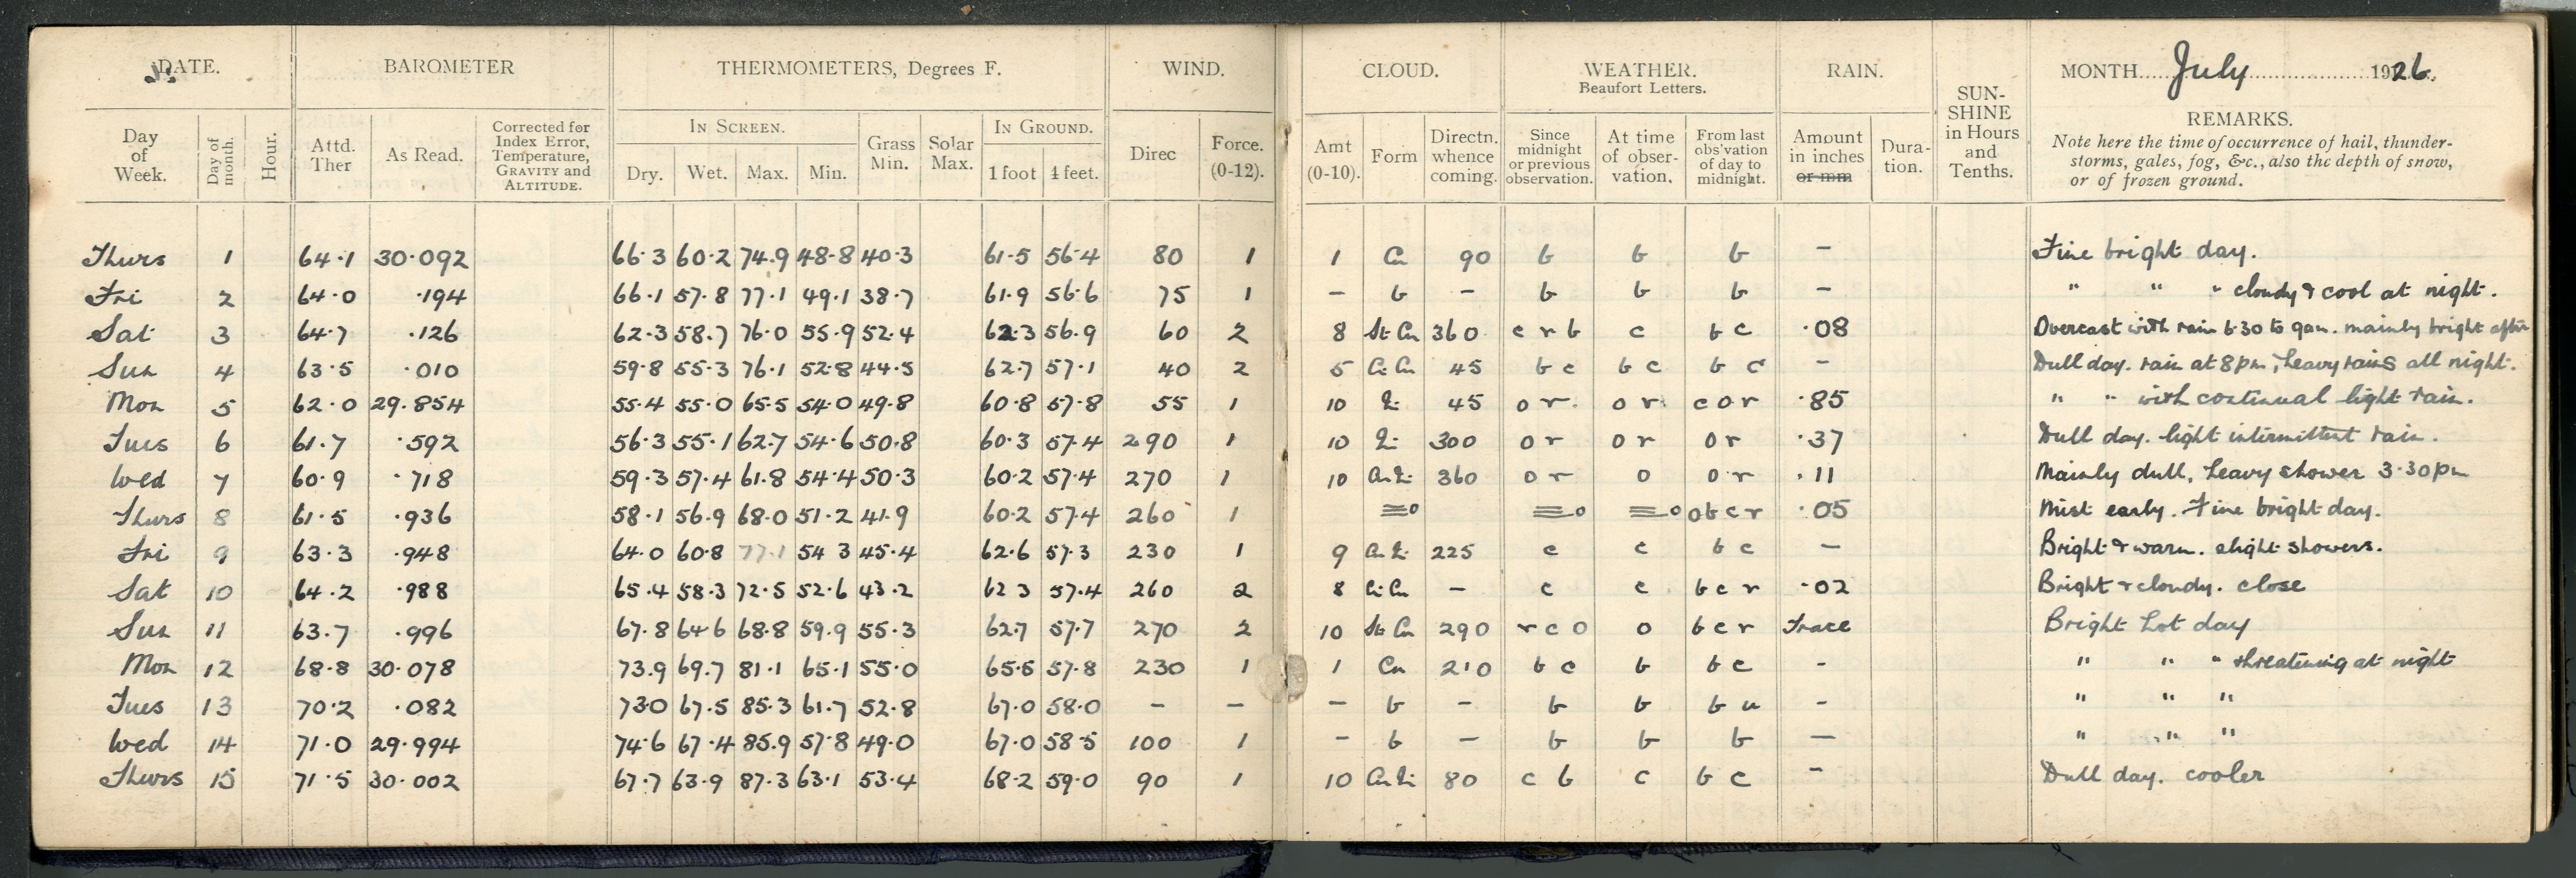 DATE. BAROMETER THERMOMETERS, Degrees F. WIND. CLOUD. WEATHER. Beaufort Letters. RAIN. SUN-SHINE in Hours and Tenths. MONTH July 1926.
REMARKS.
Note here the time of occurrence of hail, thunder-
storms, gales, fog, &c., also the depth of snow,
or of frozen ground.
IN SCREEN. IN GROUND.
Day of Week. Day of month. Hour. Attd. Ther As Read. Corrected for Index Error, Temperature, GRAVITY and ALTITUDE. Dry. Wet. Max. Min. Grass Min. Solar Max. 1 foot 4 feet. Direc Force. (0-12). Amt (0-10). Form Directn. whence coming. Since midnight or previous observation. At time of obser-vation. From last obs'vation of day to midnight. Amount in inches or mm Dura-tion.
Thurs 1 64.1 30.092 66.3 60.2 74.9 48.8 40.3 61.5 56.4 80 1 1 Cu 90 b b b - Fine bright day.
Fri 2 64.0 .194 66.1 57.8 77.1 49.1 38.7 61.9 56.6 75 1 - b - b b b - " " " cloudy & cool at night.
Sat 3 64.7 .126 62.3 58.7 76.0 55.9 52.4 62.3 56.9 60 2 8 St Cu 360 c r b c b c .08 Overcast with rain 6.30 to 9am. mainly bright after
Sun 4 63.5 .010 59.8 55.3 76.1 52.8 44.5 62.7 57.1 40 2 5 Ci Cu 45 b c b c b c - Dull day. rain at 8pm, heavy rains all night.
Mon 5 62.0 29.854 55.4 55.0 65.5 54.0 49.8 60.8 57.8 55 1 10 Ni 45 o r. o r. c o r .85 " " with continual light rain.
Tues 6 61.7 .592 56.3 55.1 62.7 54.6 50.8 60.3 57.4 290 1 10 Ni 300 o r o r o r .37 Dull day. light intermittent rain.
Wed 7 60.9 .718 59.3 57.4 61.8 54.4 50.3 60.2 57.4 270 1 10 Cu Ni 360 o r o o r .11 Mainly dull, heavy shower 3.30pm
Thurs 8 61.5 .936 58.1 56.9 68.0 51.2 41.9 60.2 57.4 260 1 ≡o ≡o ≡o o b c r .05 Mist early. Fine bright day.
Fri 9 63.3 .948 64.0 60.8 77.1 54 3 45.4 62.6 57.3 230 1 9 Cu Ni 225 c c b c - Bright & warm. slight showers.
Sat 10 64.2 .988 65.4 58.3 72.5 52.6 43.2 62 3 57.4 260 2 8 Ci Cu - c c b c r .02 Bright & cloudy. close
Sun 11 63.7 .996 67.8 64.6 68.8 59.9 55.3 62.7 57.7 270 2 10 St Cu 290 r c o o b c r Trace Bright hot day
Mon 12 68.8 30.078 73.9 69.7 81.1 65.1 55.0 65.5 57.8 230 1 1 Cu 210 b c b b c - " " " threatening at night
Tues 13 70.2 .082 73.0 67.5 85.3 61.7 52.8 67.0 58.0 - - - b - b b b u - " " "
Wed 14 71.0 29.994 74.6 67.4 85.9 57.8 49.0 67.0 58.5 100 1 - b - b b b - " " "
Thurs 15 71.5 30.002 67.7 63.9 87.3 63.1 53.4 68.2 59.0 90 1 10 Cu Ni 80 c b c b c - Dull day. cooler